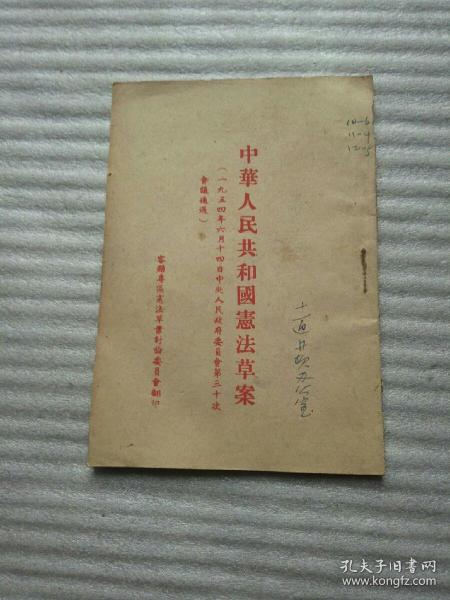 中華人民共和國憲法草案
（一九五四年六月十四日中央人民政府委員會第三十次
會議通過）
容縣專區憲法草案討論委員會翻印
10—6
11—4
孔夫子旧書网
www.kongfz.com